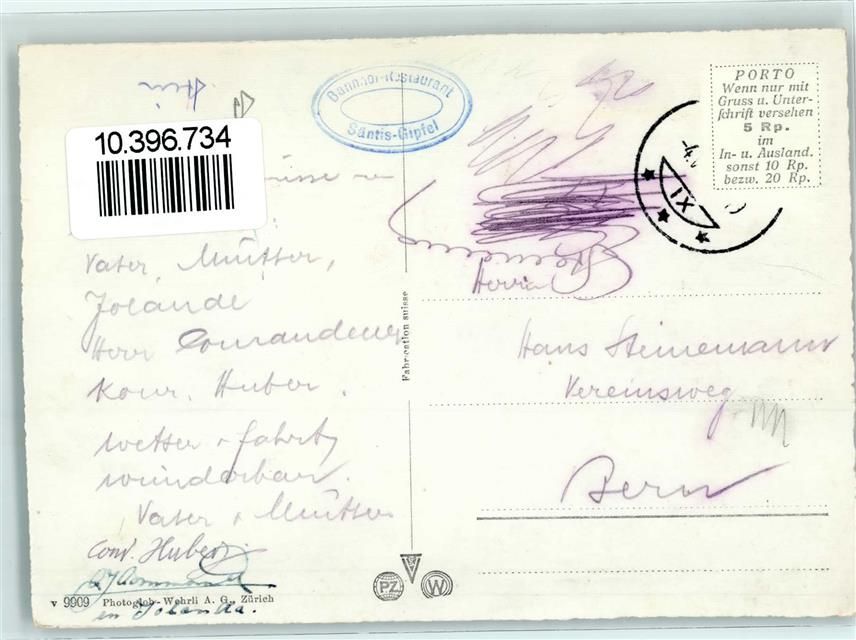 10.396.734
Bahnhof-Restaurant
Säntis-Gipfel
PORTO
Wenn nur mit
Gruss u. Unter-
schrift versehen
5 Rp.
im
In- u. Ausland.
sonst 10 Rp.
bezw. 20 Rp.
IX
Vater, Mutter,
Jolande
Herr
Konr. Huber.
Wetter + Fahrt
wunderbar.
Vater + Mutter
Conr. Huber
Jolanda.
Herrn
Hans Steinemann
Vereinsweg
Bern
Fabrication suisse
PZ
W
v 9909 Photoglob-Wehrli A. G., Zürich